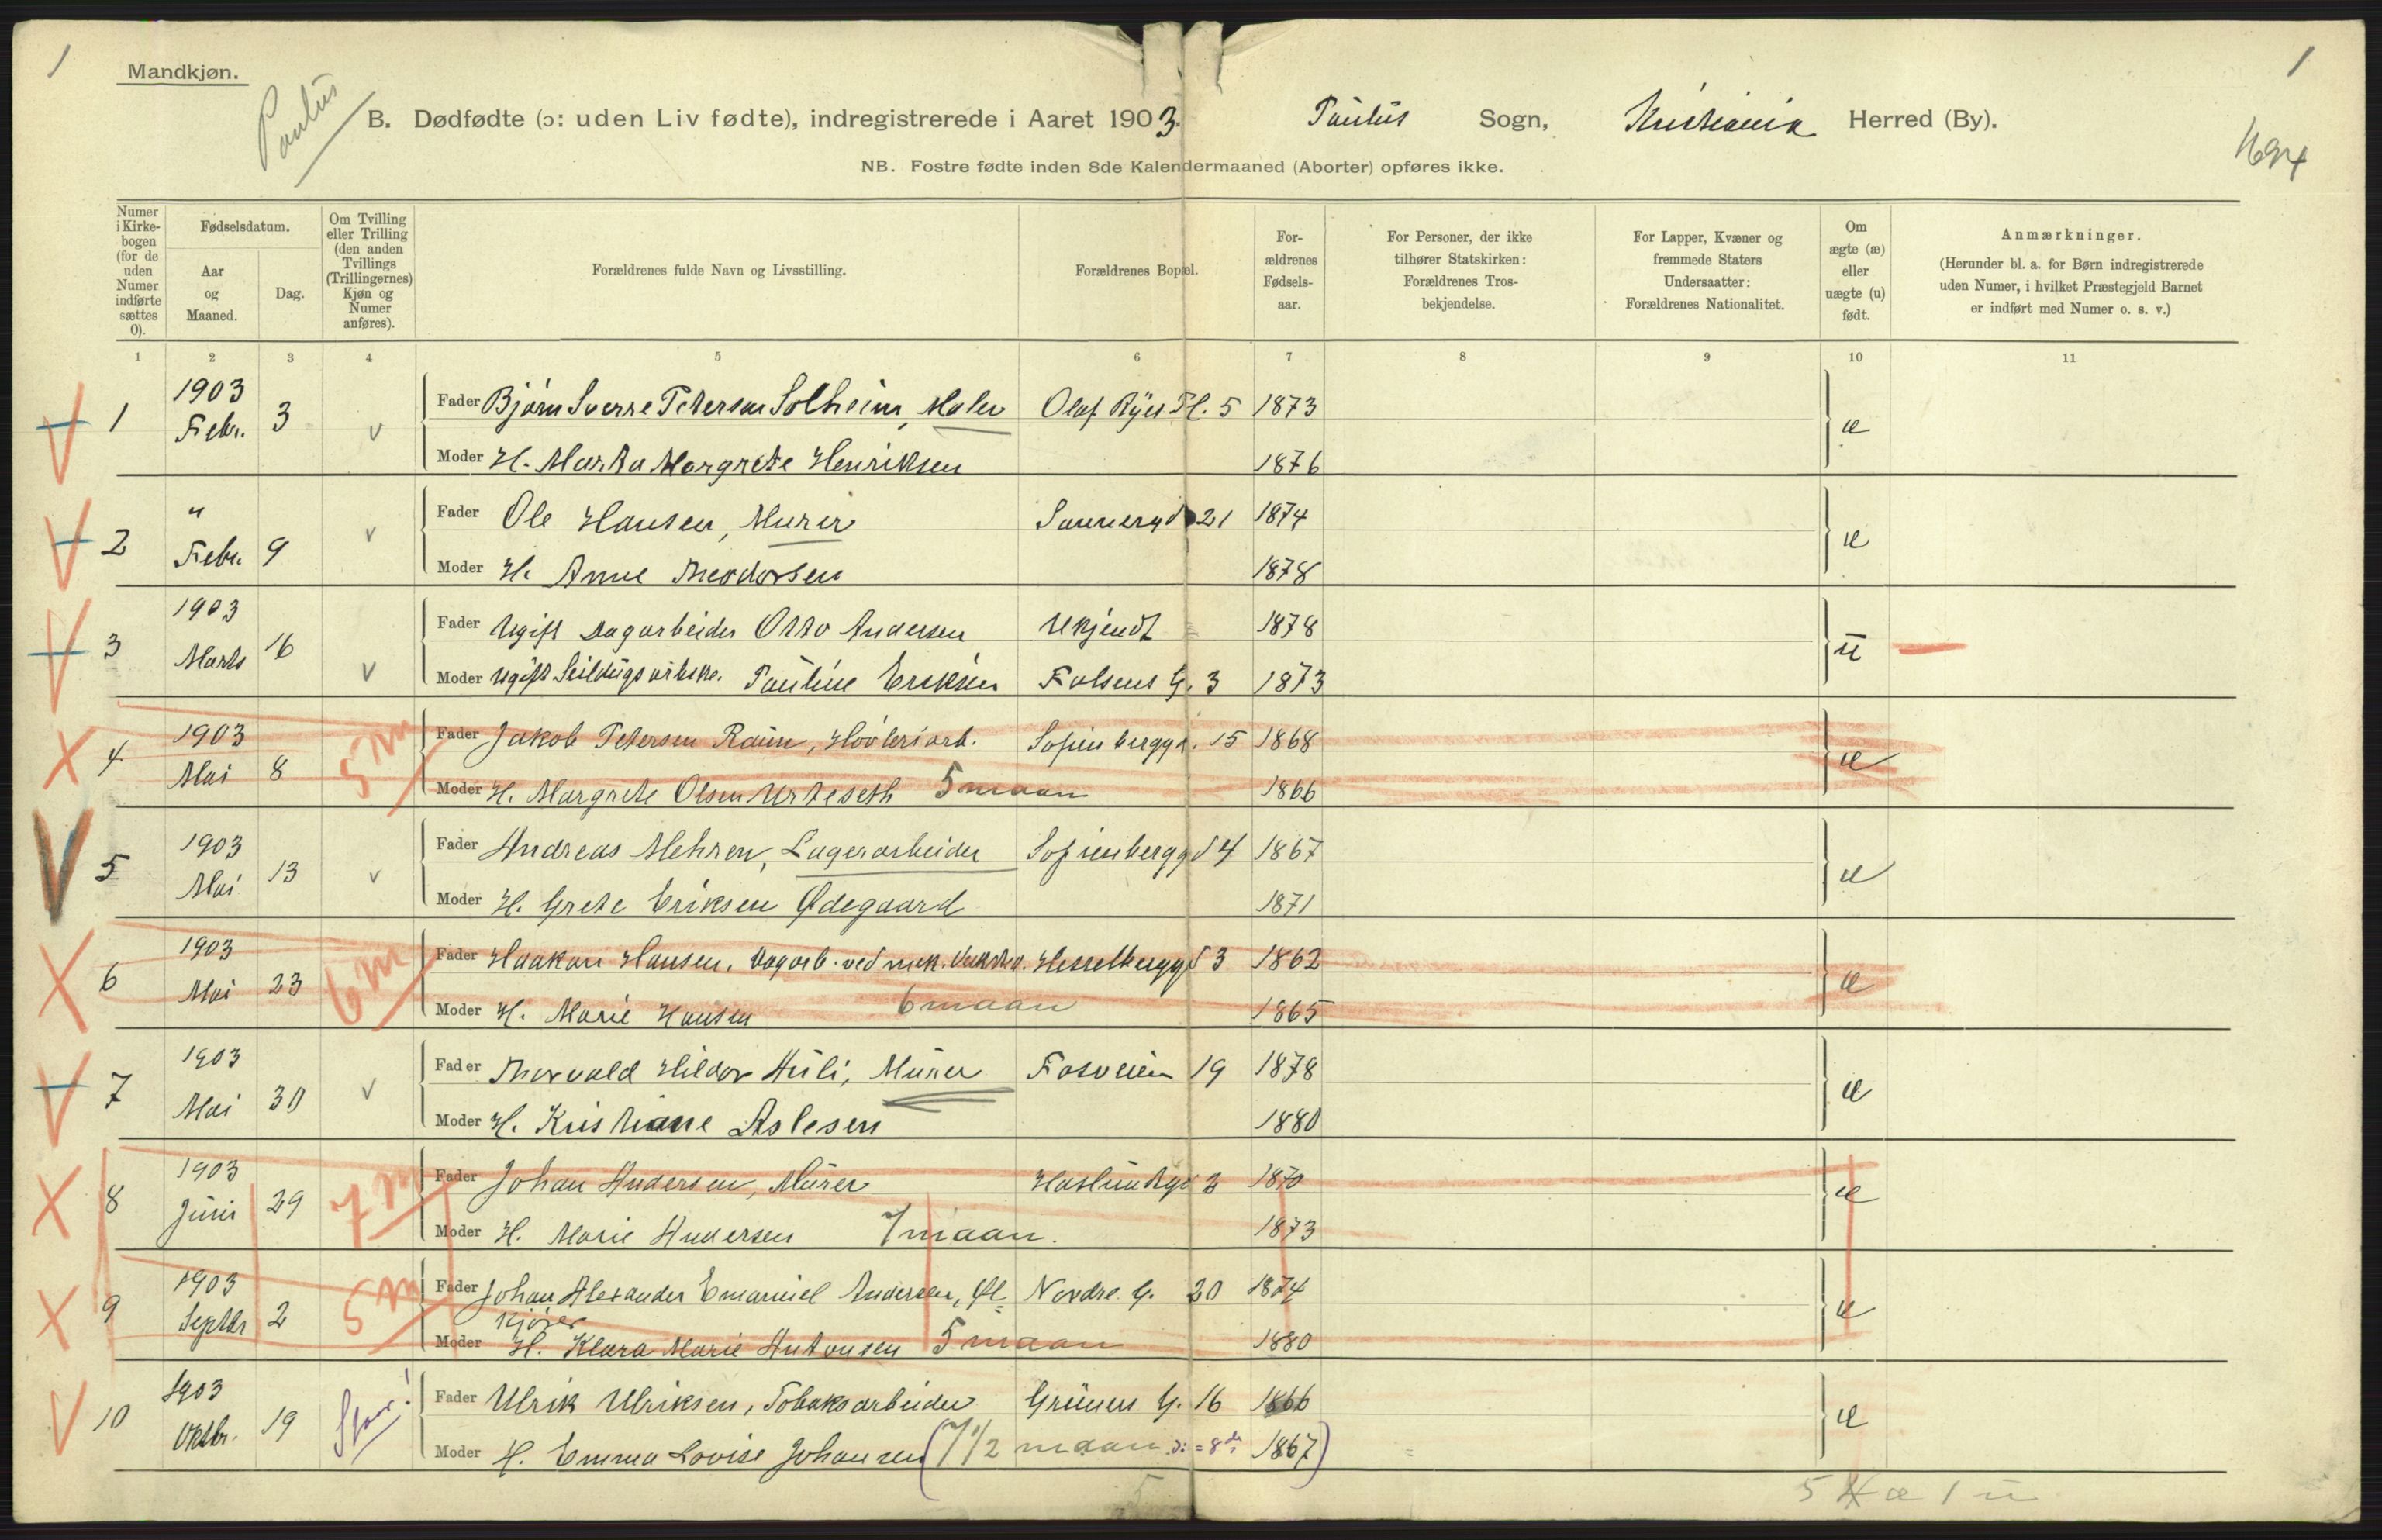 1
Mandkjøn.
Paulus
1
B. Dødfødte (ɔ: uden Liv fødte), indregistrerede i Aaret 1903. Paulus Sogn, Kristiania Herred (By).
NB. Fostre fødte inden 8de Kalendermaaned (Aborter) opføres ikke.
Numer i Kirkebogen (for de uden Numer indførte sættes 0).
Fødselsdatum.
Aar og Maaned.
Dag.
Om Tvilling eller Trilling (den anden Tvillings (Trillingernes) Kjøn og Numer anføres).
Forældrenes fulde Navn og Livsstilling.
Forældrenes Bopæl.
For-ældrenes Fødsels-aar.
For Personer, der ikke tilhører Statskirken: Forældrenes Tros-bekjendelse.
For Lapper, Kvæner og fremmede Staters Undersaatter: Forældrenes Nationalitet.
Om ægte (æ) eller uægte (u) født.
Anmærkninger.
(Herunder bl. a. for Børn indregistrerede uden Numer, i hvilket Præstegjeld Barnet er indført med Numer o. s. v.)
1 2 3 4 5 6 7 8 9 10 11
1 1903 Febr. 3 v Fader Bjørn Sverre Petersen Solheim, Maler Olaf Ryes Pl. 5 1873 æ
Moder H. Marta Margrete Henriksen 1876
2 " Febr. 9 v Fader Ole Hansen, Murer Sannergd 21 1874 æ
Moder H. Anne Theodorsen 1878
3 1903 Marts 16 v Fader Ugift Dagarbeider Otto Andersen Ukjendt 1878 u
Moder Ugift Seildugsarbske. Pauline Eriksen Falsens G. 3 1873
4 1903 Mai 8 5 m Fader Jakob Petersen Raum, Høvleriarb. Sofienberggd. 15 1868 æ
Moder H. Margrete Olsen Urteseth 5 maan 1866
5 1903 Mai 13 v Fader Andreas Mehren, Lagerarbeider Sofienberggd 4 1867 æ
Moder H. Grete Eriksen Ødegaard 1871
6 1903 Mai 23 6 m Fader Haakon Hansen, Dagarb. ved mek. Verksted. Hesselberggd 3 1862 æ
Moder H. Marie Hansen 6 maan 1865
7 1903 Mai 30 v Fader Thorvald Hildor Huli, Murer Fosveien 19 1878 æ
Moder H. Kristiane Aslesen 1880
8 1903 Juni 29 7 m Fader Johan Andersen, Murer Haslundgd 3 1870 æ
Moder H. Marie Andersen 7 maan. 1873
9 1903 Septbr 2 5 m Fader Johan Alexander Emanuel Andersen, Øl= Nordre G. 20 1874 æ
kjører
Moder H. Klara Marie Antonsen 5 maan 1880
10 1903 Oktbr. 19 Fader Ulrik Ulriksen, Tobaksarbeider Grüners G. 16 1866 æ
Moder H. Emma Lovise Johansen (7 1/2 maan ɔ: = 8de 1867)
5
5 æ 1 u